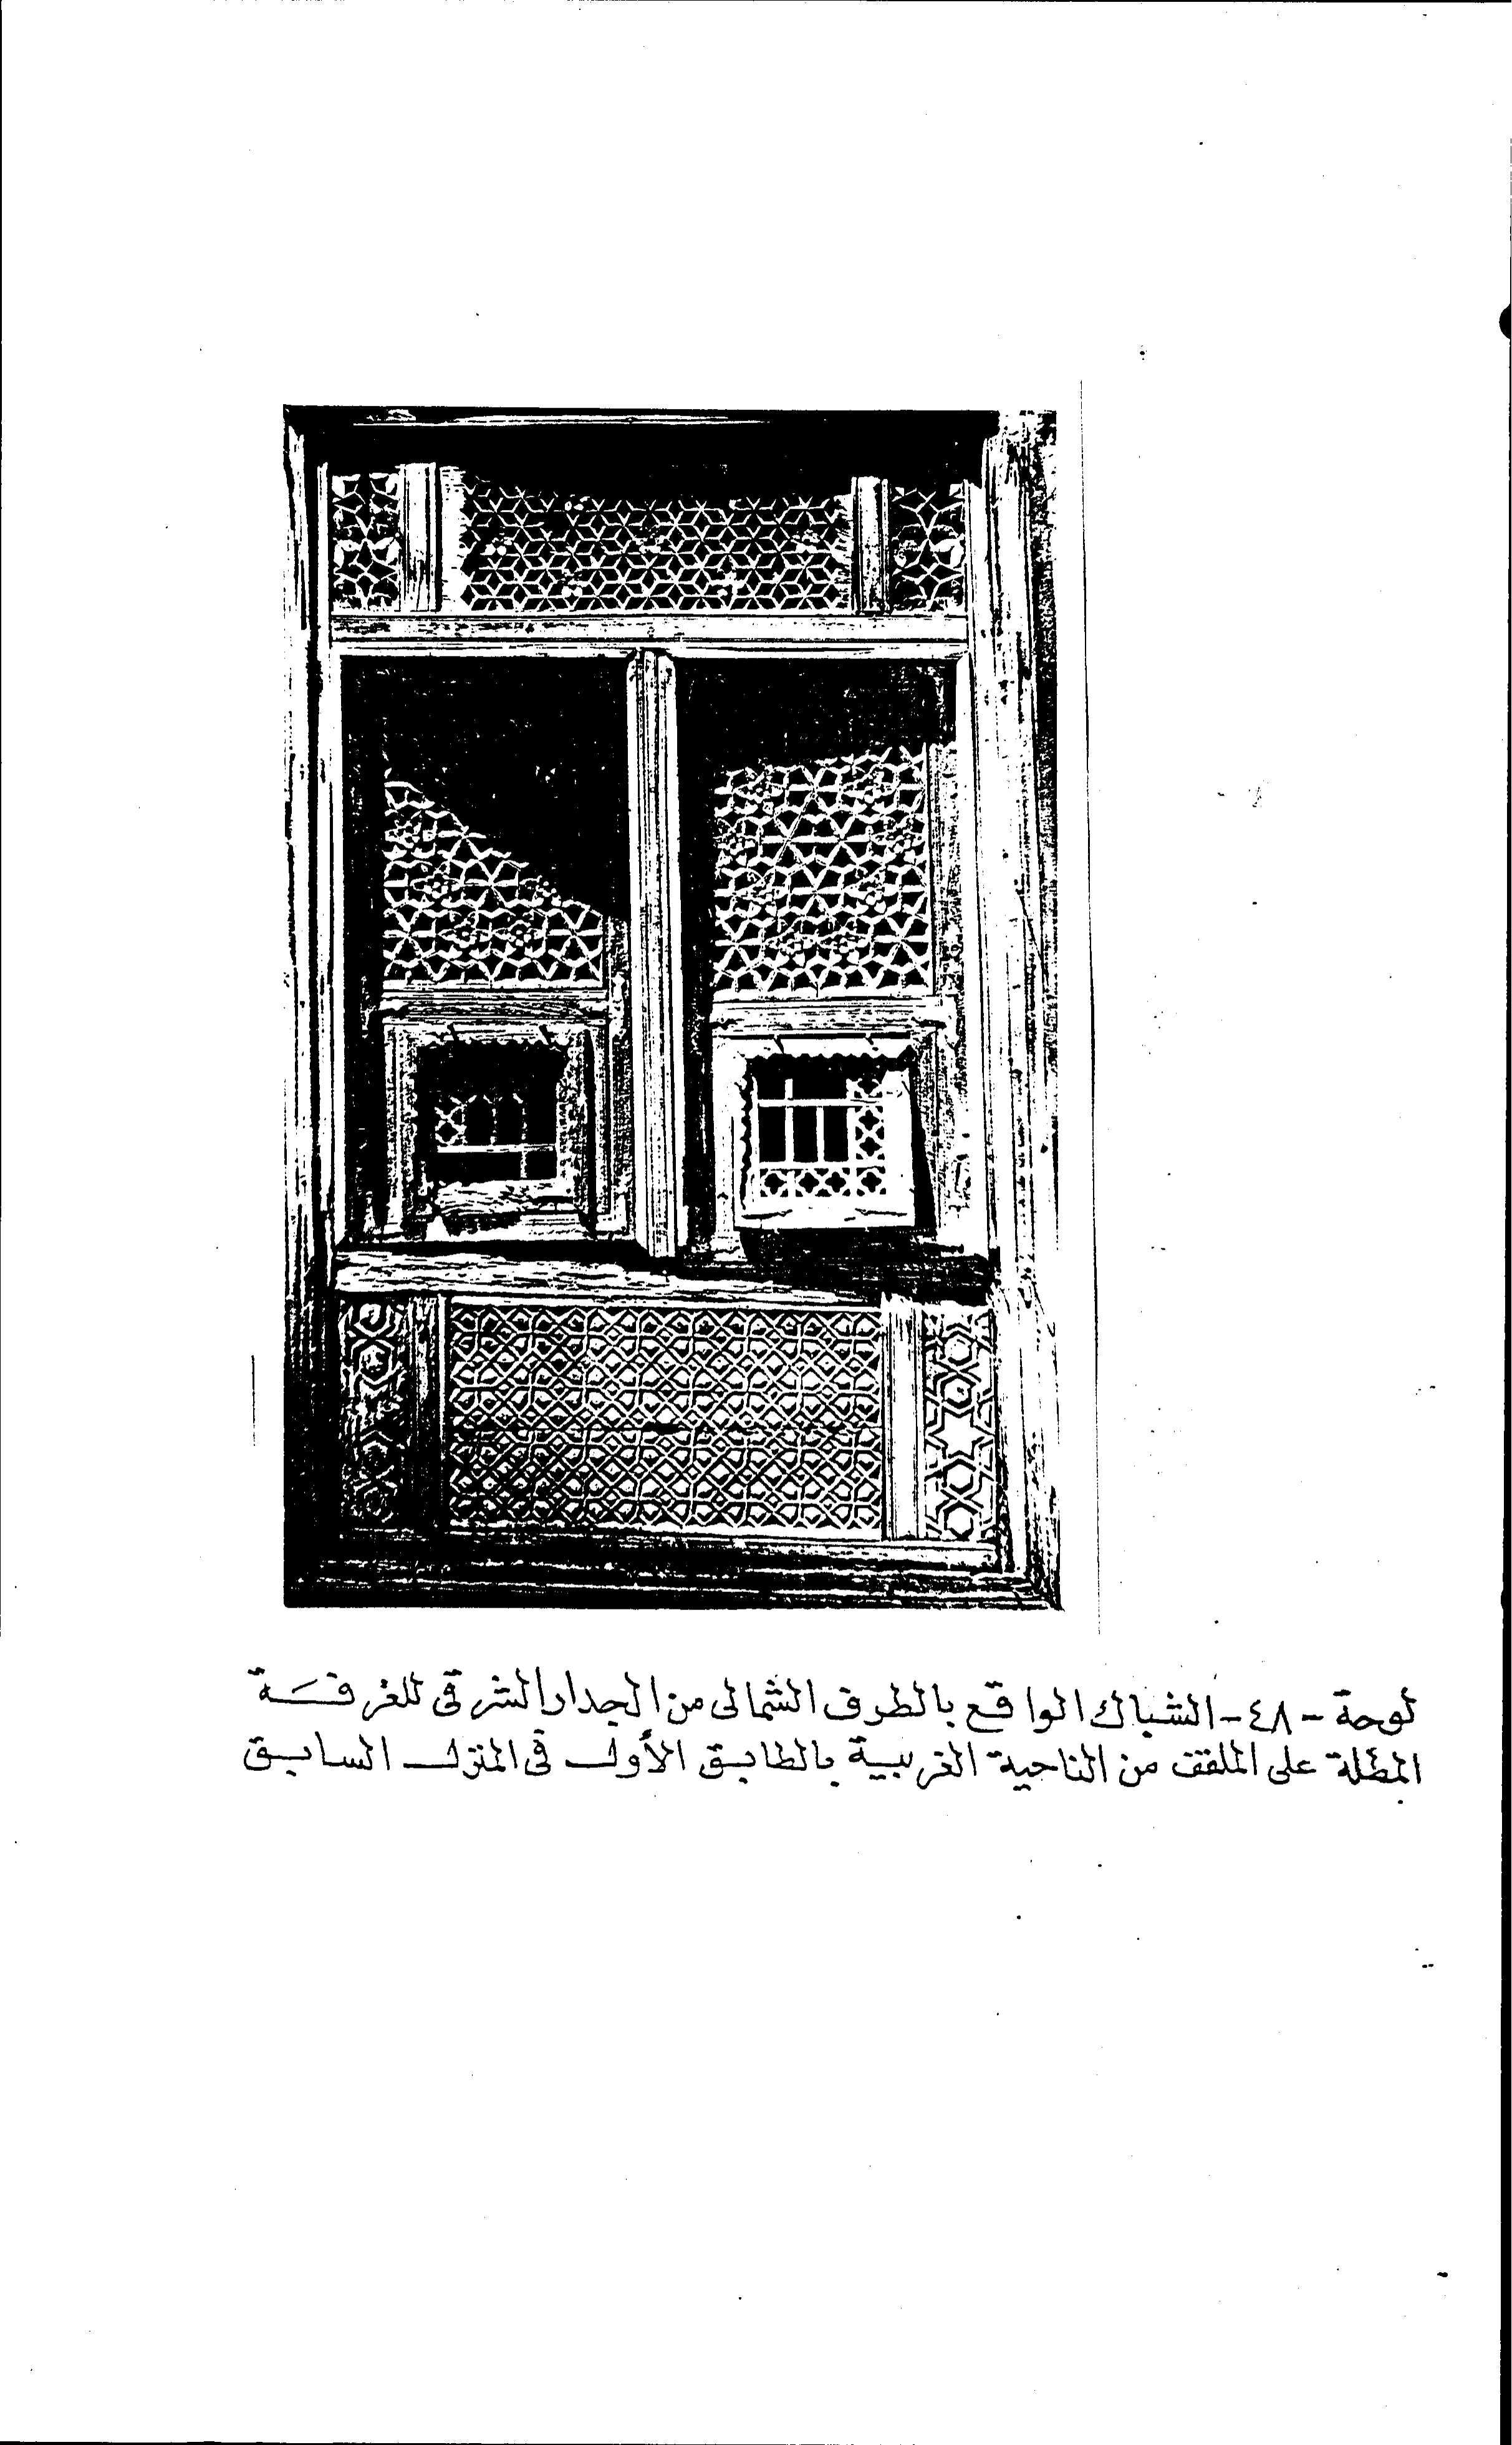 لوحة - ٤٨ - الشباك الواقع بالطرف الشمالى من الجدار الشرقى للغرفة
المطلة على الملقف من الناحية الغربية بالطابق الأول فى المنزل السابق